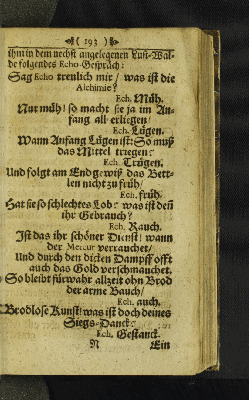 ( 193 )
ihm in dem nechst angelegenen Lust-Wal-
de folgendes Echo-Gespräch:
Sag Echo treulich mir / was ist die
Alchimie?
Ech. Müh.
Nur müh! so macht sie ja im An-
fang all erliegen /
Ech. Lügen.
Wann Anfang Lügen ist: So muß
das Mittel triegen:
Ech. Trügen.
Und folgt am End gewiß das Bett-
len nicht zu früh /
Ech. früh.
Hat sie so schlechtes Lob: was ist deñ
ihr Gebrauch?
Ech. Rauch.
Ist das ihr schöner Dienst! wann
der Mercur verrauchet /
Und durch den dicken Dampff offt
auch das Gold verschmauchet.
So bleibt fürwahr allzeit ohn Brod
der arme Bauch /
Ech. auch.
Brodlose Kunst! was ist doch deines
Siegs-Danck:
Ech. Gestanck.
N Ein